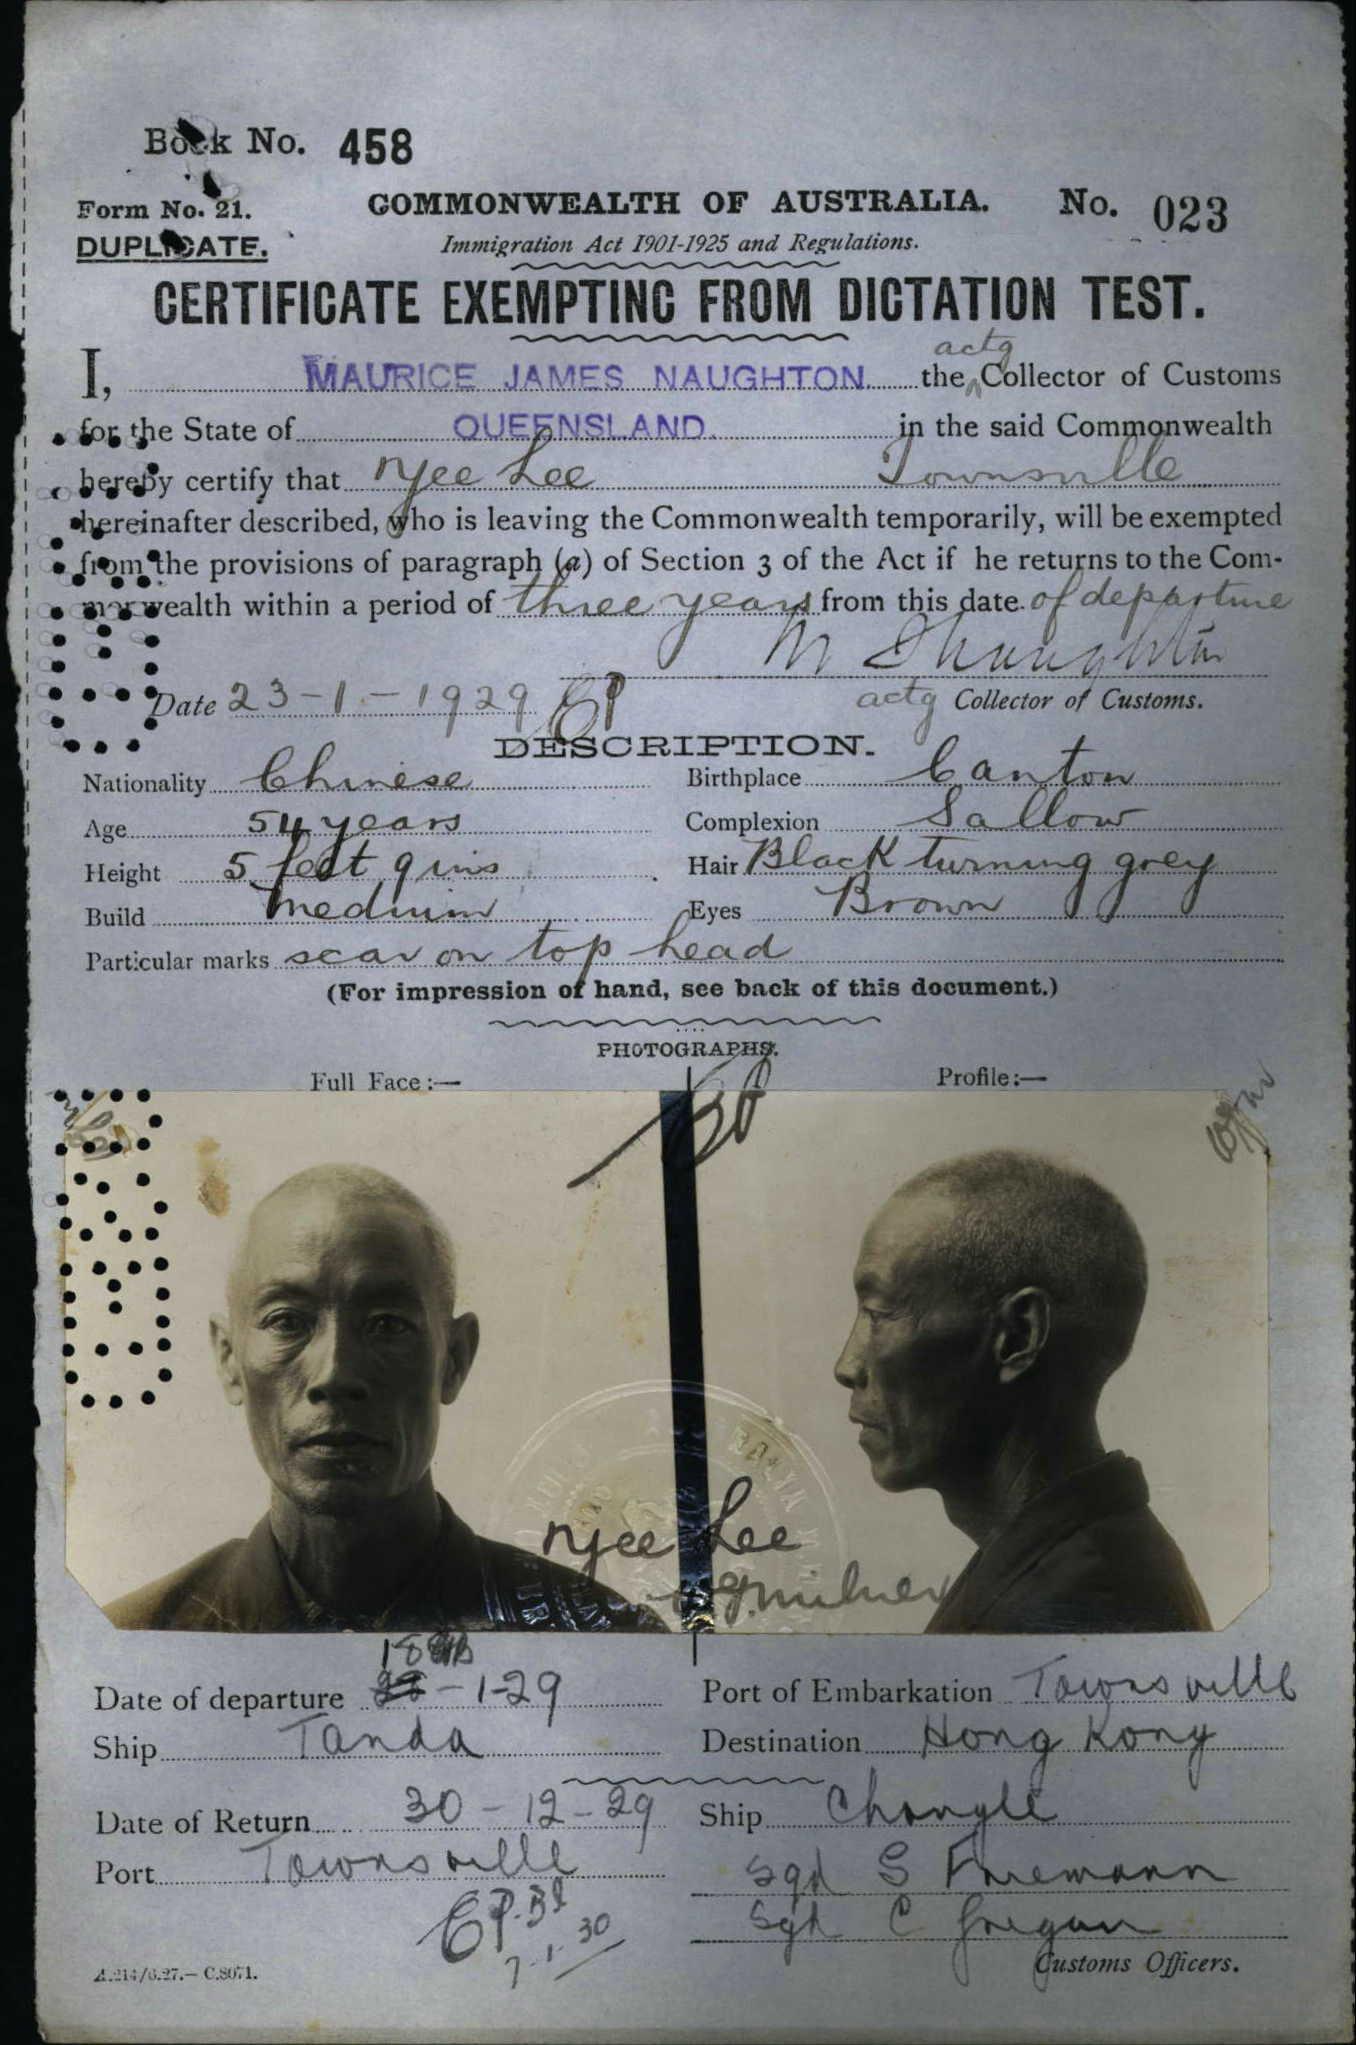 Book No. 458
Form No. 21. COMMONWEALTH OF AUSTRALIA. No. 023
DUPLICATE. Immigration Act 1901-1925 and Regulations.
CERTIFICATE EXEMPTING FROM DICTATION TEST.
actg
I, MAURICE JAMES NAUGHTON the Collector of Customs
for the State of QUEENSLAND. in the said Commonwealth
hereby certify that Nyee Lee Townsville
hereinafter described, who is leaving the Commonwealth temporarily, will be exempted
from the provisions of paragraph (a) of Section 3 of the Act if he returns to the Com-
monwealth within a period of three years from this date of departure
Date 23-1-1929 actg Collector of Customs.
DESCRIPTION.
Nationality Chinese Birthplace Canton
Age 54 years Complexion Sallow
Height 5 feet 9 ins Hair Black turning grey
Build Medium Eyes Brown
Particular marks scar on top head
(For impression of hand, see back of this document.)
PHOTOGRAPHS.
Full Face:— Profile:—
Nyee Lee
Milner
Date of departure -1-29 Port of Embarkation Townsville
Ship Tanda Destination Hong Kong
Date of Return 30-12-29 Ship Changte
Port Townsville Sgd S
Sgd C
7.1.30
Customs Officers.
A.214/6.27.—C.8071.